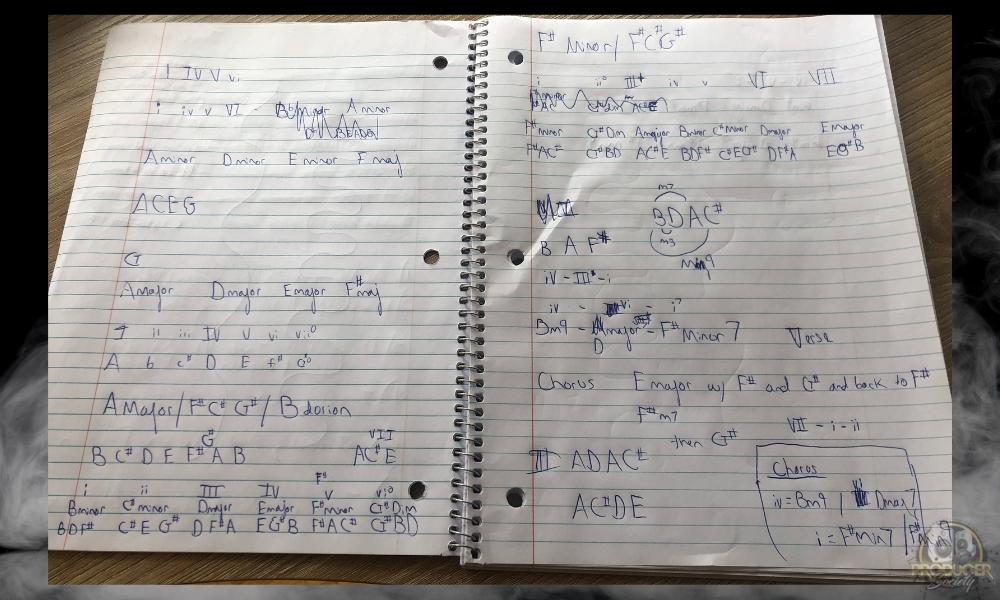 I IV V vi
i iv v VI - Bbminor A minor
A minor D minor E minor F maj
ACEG
G
A major D major E major F# maj
I ii iii IV V vi vii°
A b c# D E f# g°
A Major / F# C# G# / B dorian
G#
B C# D E F# A B
VII
AC#E
F#
i ii III IV v vi°
B minor C# minor D major E major F# minor G# Dim
BDF# C#EG# DF#A EG#B F#AC# G#BD
F# Minor / F# C# G#
i ii° III+ iv v VI VII
F# minor G# Dim A major B minor C# minor D major E major
F#AC# G#BD AC#E BDF# C#EG# DF#A EG#B
m7
BDAC#
m3
Min9
B A F#
iv - III - i
iv - vi - i7
Bm9 - major - F# Minor 7
D
Verse
Chorus E major w/ F# and G# and back to F#
F#m7
then G#
VII - i - ii
III ADAC#
AC#DE
Chorus
iv = Bm9 / vi Dmaj7
i = F#min7 / F#min9
PRODUCER
Society